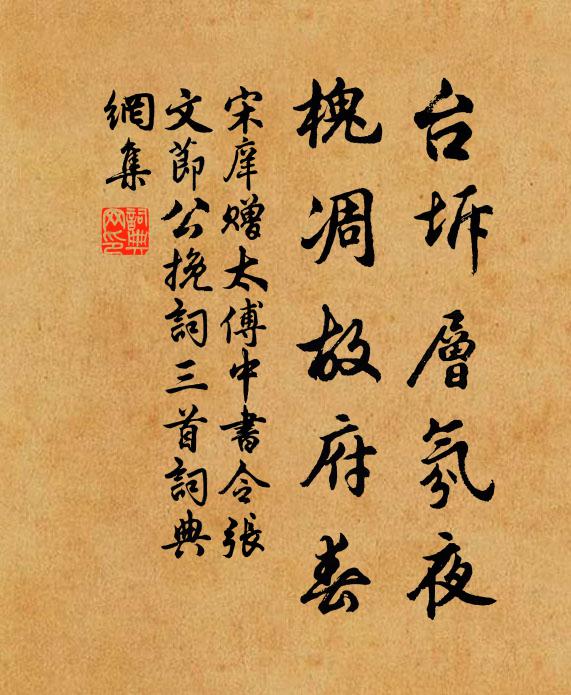 台坼層氛夜
槐凋故府春
宋庠赠太傅中書令張
文節公挽詞三首詞典
網集
詞典
网印